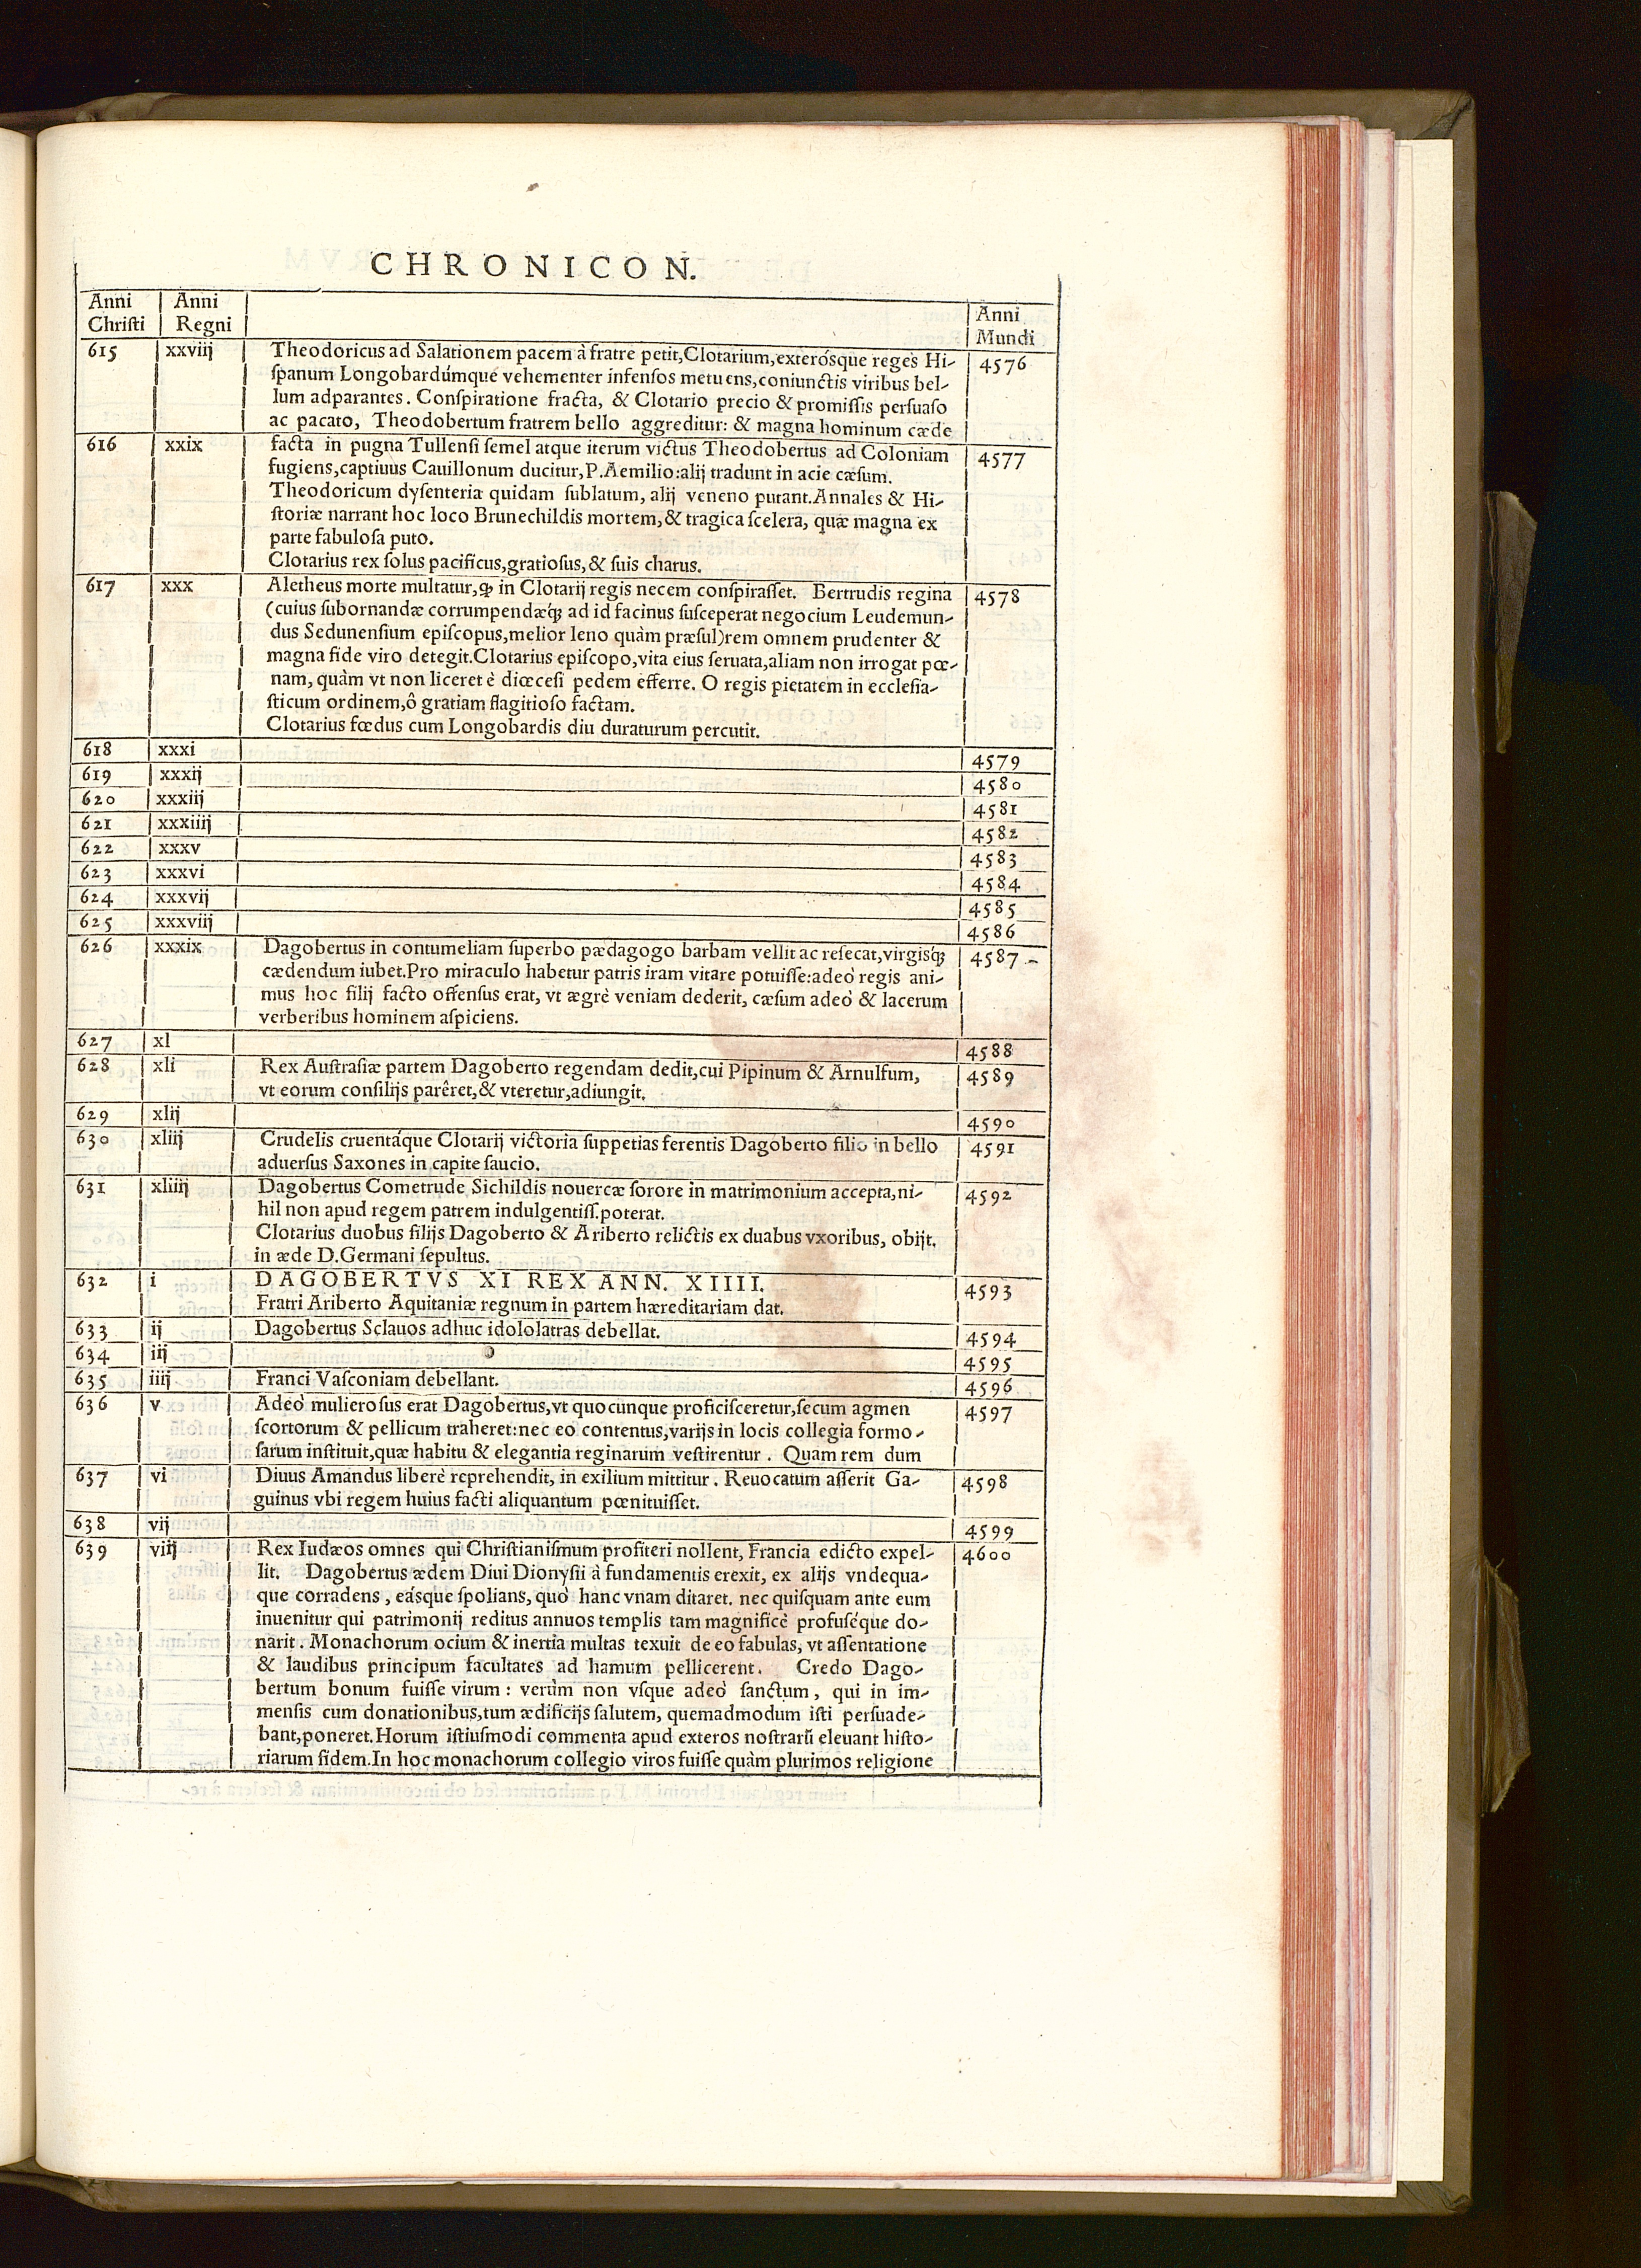 CHRONICON.
Anni Christi | Anni Regni | Anni Mundi
615 xxviij Theodoricus ad Salationem pacem à fratre petit, Clotarium, exterósque reges Hi- 4576
spanum Longobardúmque vehementer infensos metuens, coniunctis viribus bel-
lum adparantes. Conspiratione fracta, & Clotario precio & promissis persuaso
ac pacato, Theodobertum fratrem bello aggreditur: & magna hominum cæde
616 xxix facta in pugna Tullensi semel atque iterum victus Theodobertus ad Coloniam 4577
fugiens, captiuus Cauillonum ducitur, P. Aemilio: alij tradunt in acie cæsum.
Theodoricum dysenteria quidam sublatum, alij veneno putant. Annales & Hi-
storiæ narrant hoc loco Brunechildis mortem, & tragica scelera, quæ magna ex
parte fabulosa puto.
Clotarius rex solus pacificus, gratiosus, & suis charus.
617 xxx Aletheus morte multatur, ꝙ in Clotarij regis necem conspirasset. Bertrudis regina 4578
(cuius subornandæ corrumpendæq́ꝫ ad id facinus susceperat negocium Leudemun-
dus Sedunensium episcopus, melior leno quàm præsul) rem omnem prudenter &
magna fide viro detegit. Clotarius episcopo, vita eius seruata, aliam non irrogat pœ-
nam, quàm vt non liceret è diœcesi pedem efferre. O regis pietatem in ecclesia-
sticum ordinem, ô gratiam flagitioso factam.
Clotarius fœdus cum Longobardis diu duraturum percutit.
618 xxxi 4579
619 xxxij 4580
620 xxxiij 4581
621 xxxiiij 4582
622 xxxv 4583
623 xxxvi 4584
624 xxxvij 4585
625 xxxviij 4586
626 xxxix Dagobertus in contumeliam superbo pædagogo barbam vellit ac resecat, virgisq́ꝫ 4587
cædendum iubet. Pro miraculo habetur patris iram vitare potuisse: adeò regis ani-
mus hoc filij facto offensus erat, vt ægrè veniam dederit, cæsum adeò & lacerum
verberibus hominem aspiciens.
627 xl 4588
628 xli Rex Austrasiæ partem Dagoberto regendam dedit, cui Pipinum & Arnulfum, 4589
vt eorum consilijs parêret, & vteretur, adiungit.
629 xlij 4590
630 xliij Crudelis cruentáque Clotarij victoria suppetias ferentis Dagoberto filio in bello 4591
aduersus Saxones in capite saucio.
631 xliiij Dagobertus Cometrude Sichildis nouercæ sorore in matrimonium accepta, ni- 4592
hil non apud regem patrem indulgentiss. poterat.
Clotarius duobus filijs Dagoberto & Ariberto relictis ex duabus vxoribus, obijt.
in æde D. Germani sepultus.
632 i DAGOBERTVS XI REX ANN. XIIII. 4593
Fratri Ariberto Aquitaniæ regnum in partem hæreditariam dat.
633 ij Dagobertus Sclauos adhuc idololatras debellat. 4594
634 iij 4595
635 iiij Franci Vasconiam debellant. 4596
636 v Adeò mulierosus erat Dagobertus, vt quocunque proficisceretur, secum agmen 4597
scortorum & pellicum traheret: nec eo contentus, varijs in locis collegia formo-
sarum instituit, quæ habitu & elegantia reginarum vestirentur. Quam rem dum
637 vi Diuus Amandus liberè reprehendit, in exilium mittitur. Reuocatum asserit Ga- 4598
guinus vbi regem huius facti aliquantum pœnituisset.
638 vij 4599
639 viij Rex Iudæos omnes qui Christianismum profiteri nollent, Francia edicto expel- 4600
lit. Dagobertus ædem Diui Dionysii à fundamentis erexit, ex alijs vndequa-
que corradens, eásque spolians, quò hanc vnam ditaret. nec quisquam ante eum
inuenitur qui patrimonij reditus annuos templis tam magnificè profuséque do-
narit. Monachorum ocium & inertia multas texuit de eo fabulas, vt assentatione
& laudibus principum facultates ad hamum pellicerent. Credo Dago-
bertum bonum fuisse virum: verùm non vsque adeò sanctum, qui in im-
mensis cum donationibus, tum ædificijs salutem, quemadmodum isti persuade-
bant, poneret. Horum istiusmodi commenta apud exteros nostrarũ eleuant histo-
riarum fidem. In hoc monachorum collegio viros fuisse quàm plurimos religione